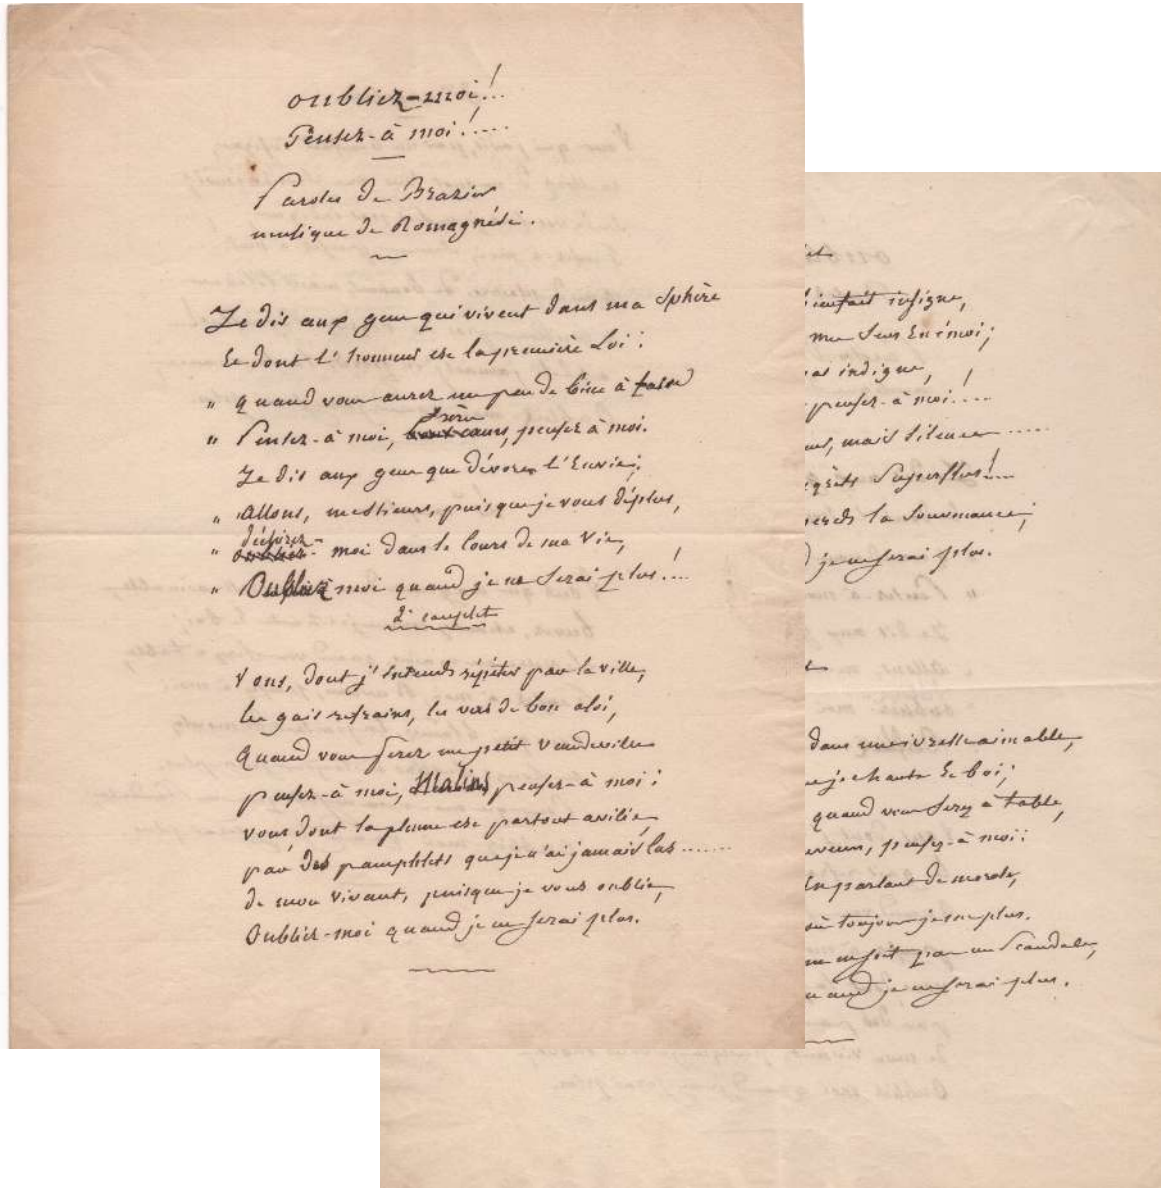 oubliez-moi!...
Pensez-à moi!.....
Paroles de Brazier
musique de Romagnési.
Je dis aux gens qui vivent dans ma Sphère
Et dont l'honneur est la première Loi:
" quand vous aurez un peu de bien à faire
" Pensez-à moi, frère, pensez à moi.
Je dis aux gens que dévore l'Envie;
" Allons, messieurs, puisque je vous déplus,
" déchirez-moi dans le Cours de ma Vie,
" Oubliez moi quand je ne Serai plus!...
2e couplet
Vous, dont j'entends répéter par la ville,
les gais refrains, les vers de bon aloi,
Quand vous ferez un petit Vaudeville
pensez-à moi, Malins, pensez-à moi;
vous dont la plume est partout avilie,
par des pamphlets que je n'ai jamais lus.......
de mon vivant, puisque je vous oublie,
Oubliez-moi quand je ne serai plus.
bienfait insigne,
mes Sens En émoi;
pas indigne,
pensez-à moi!....
mais Silence.....
regrets Superflus!...
perds la Souvenance;
je ne serai plus.
dans une ivresse aimable,
je chante Et boi;
quand vous Serez à table,
buveurs, pensez-à moi:
En parlant de morale,
où toujours je me plus.
ne soit pas un Scandale,
quand je ne serai plus.